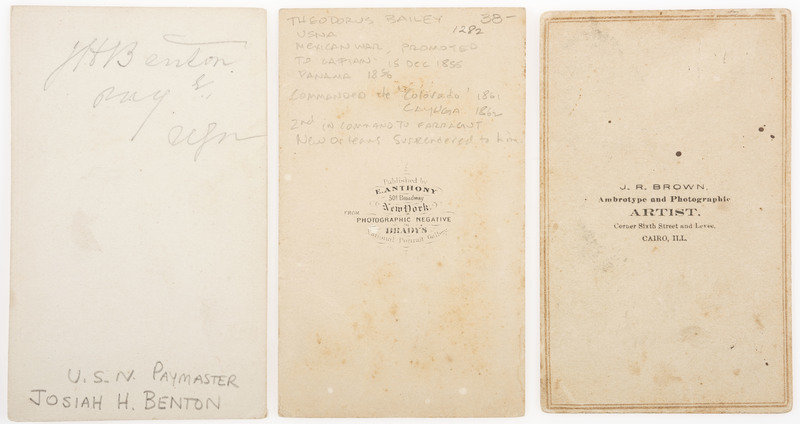 JHBenton
U.S.N. PAYMASTER
JOSIAH H. BENTON
THEODORUS BAILEY 38-
1282
USNA
MEXICAN WAR, PROMOTED
TO CAPTAIN 15 DEC 1855
PANAMA 1856
COMMANDED the "Colorado" 1861
CAYUGA 1862
2nd IN COMMAND TO FARRAGUT
NEW ORLEANS SURRENDERED to him.
Published by
E. ANTHONY
501 Broadway
New York.
FROM
PHOTOGRAPHIC NEGATIVE
BRADY'S
National Portrait Gallery
J. R. BROWN,
Ambrotype and Photographic
ARTIST.
Corner Sixth Street and Levee,
CAIRO, ILL.